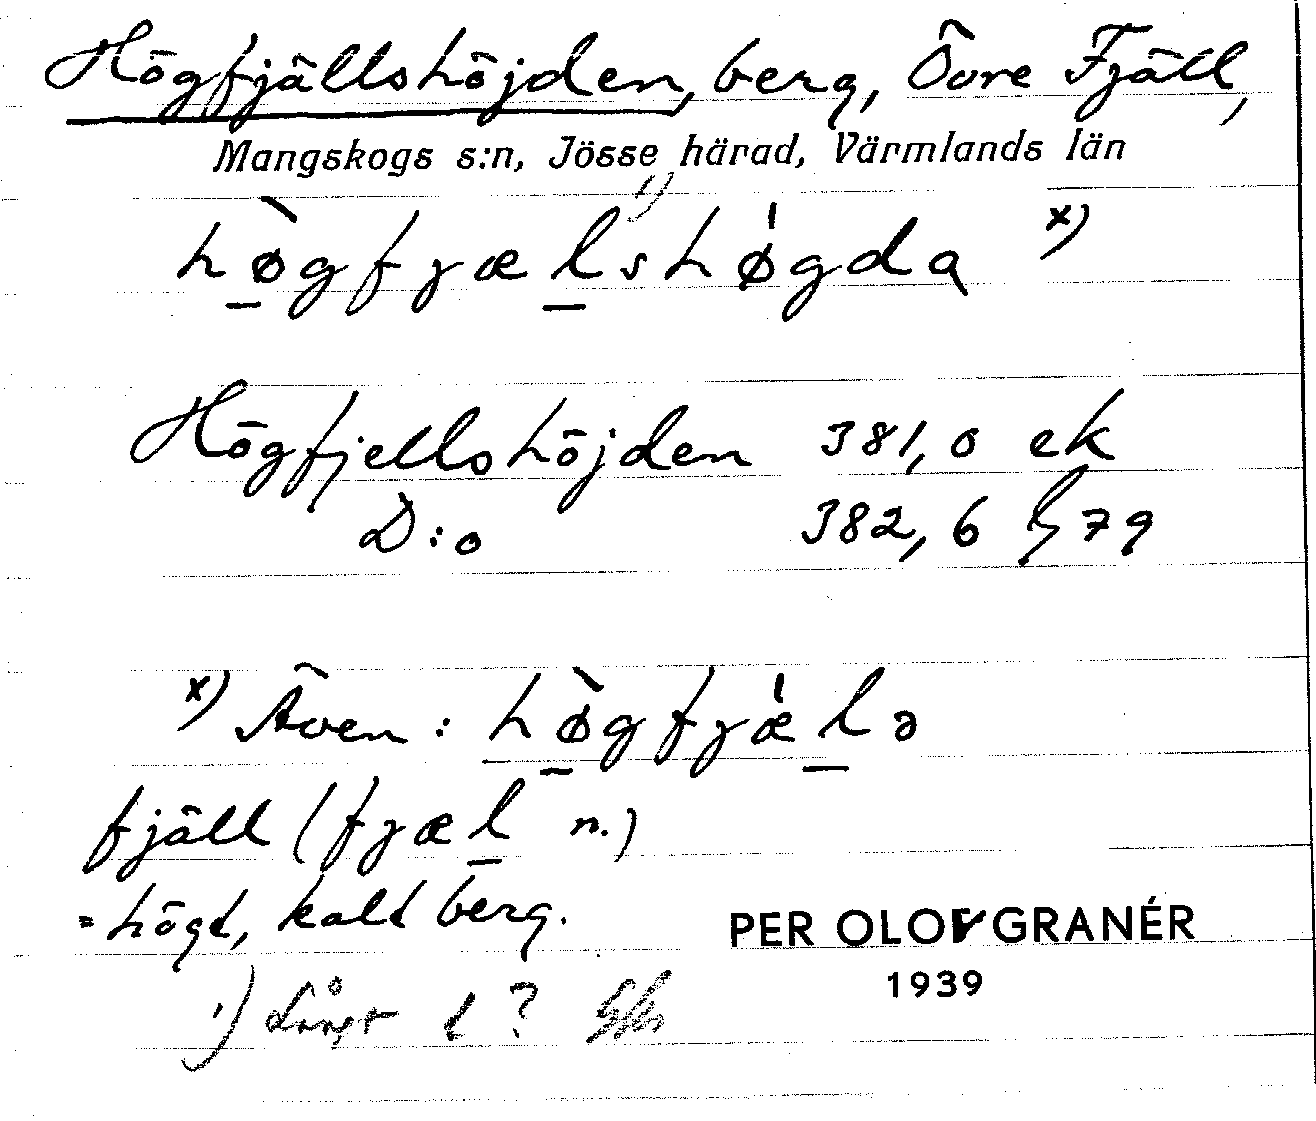 Högfjällshöjden, berg, Övre Fjäll,
Mangskogs s:n, Jösse härad, Värmlands län
hø̀gfjælshǿgda x)
Högfjellshöjden 381,0 ek
D:o 382,6 h79
x) Även: hø̀gfjǽlə
fjäll (fjæl n.)
= högt, kalt berg.
PER OLOF GRANÉR
1939
1) Långt l?